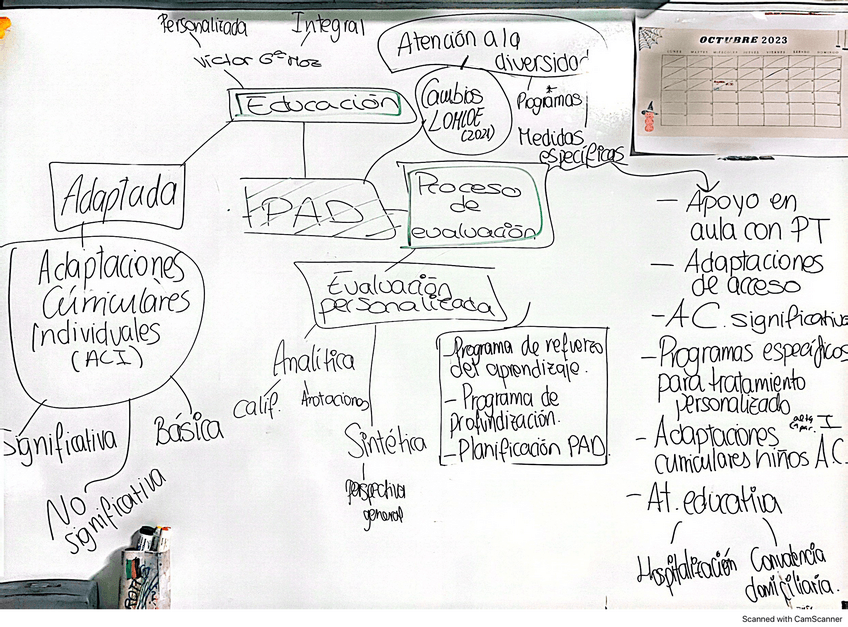 Personalizada
Integral
Victor Gª Hoz
Educación
Atención a la
diversidad
Cambios
LOMLOE
(2021)
Programas
Medidas
específicas
OCTUBRE 2023
Adaptada
PAD
Proceso
de
evaluación
Adaptaciones
Curriculares
Individuales
(ACI)
Significativa
No
significativa
Básica
Evaluación
personalizada
Analítica
Calif.
Anotaciones
Sintética
perspectiva
general
Programa de refuerzo
del aprendizaje.
- Programa de
profundización.
- Planificación PAD.
- Apoyo en
aula con PT
- Adaptaciones
de acceso
- A.C. significativa
- Programas específicos
para tratamiento
personalizado
- Adaptaciones
curriculares niños A.C.
I
- At. educativa
Hospitalización
Convalecencia
domiciliaria.
Scanned with CamScanner